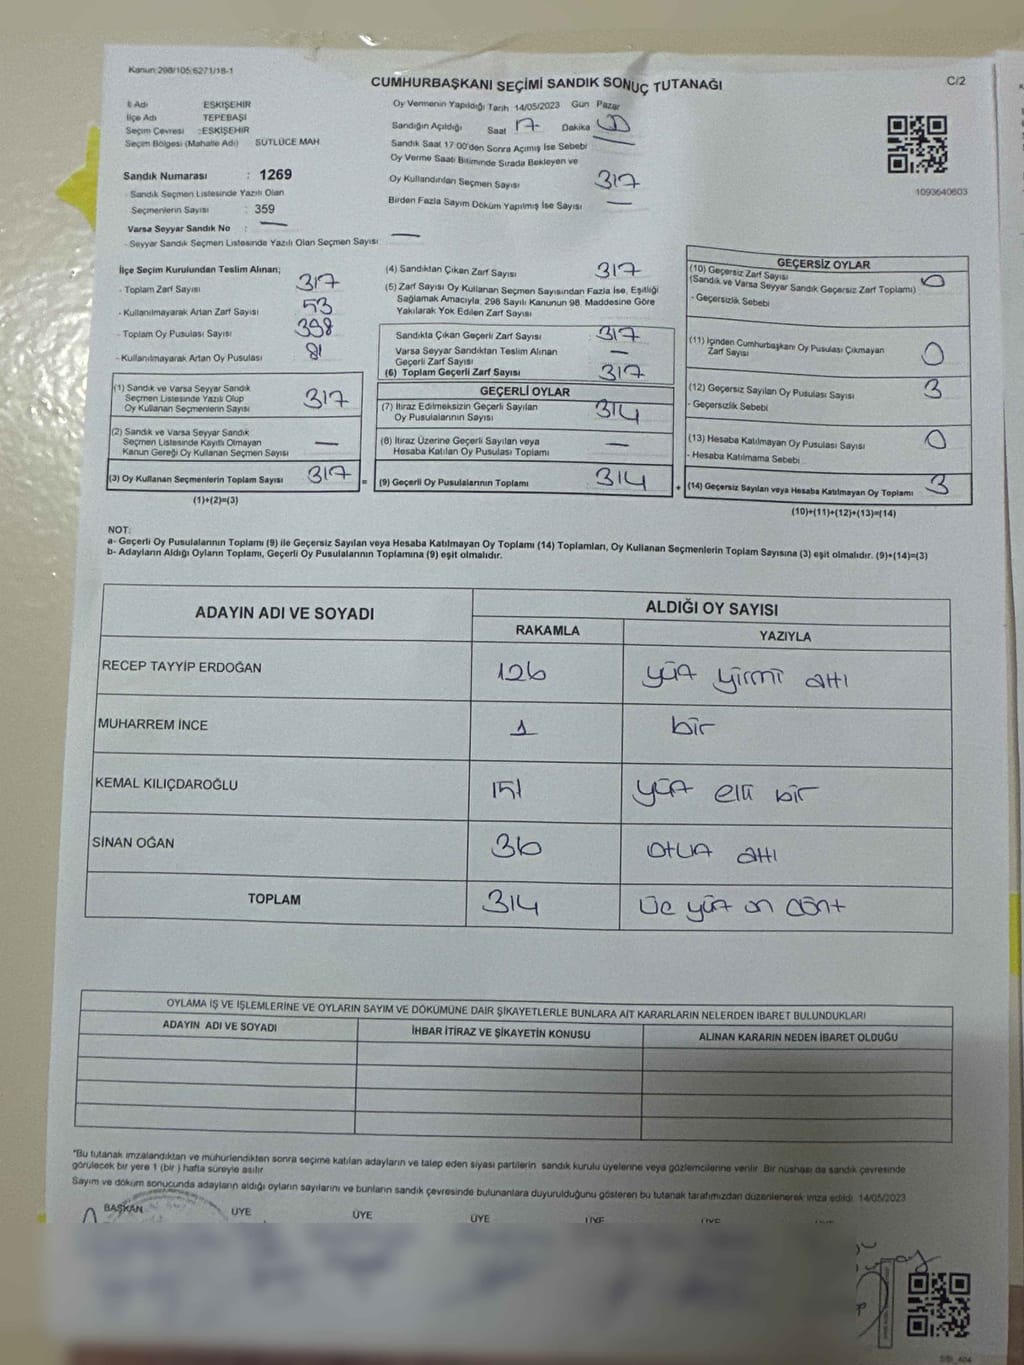 Kanun:298/105;6271/18-1
CUMHURBAŞKANI SEÇİMİ SANDIK SONUÇ TUTANAĞI
C/2
İl Adı ESKİŞEHİR
İlçe Adı TEPEBAŞI
Seçim Çevresi :ESKİŞEHİR
Seçim Bölgesi (Mahalle Adı) SÜTLÜCE MAH.
Sandık Numarası : 1269
- Sandık Seçmen Listesinde Yazılı Olan
Seçmenlerin Sayısı : 359
Varsa Seyyar Sandık No : —
- Seyyar Sandık Seçmen Listesinde Yazılı Olan Seçmen Sayısı —
Oy Vermenin Yapıldığı Tarih :14/05/2023 Gün Pazar
Sandığın Açıldığı Saat 17 Dakika 00
Sandık Saat 17:00'den Sonra Açmış İse Sebebi —
Oy Verme Saati Bitiminde Sırada Bekleyen ve
Oy Kullandırılan Seçmen Sayısı 317
Birden Fazla Sayım Döküm Yapılmış İse Sayısı —
1093640603
İlçe Seçim Kurulundan Teslim Alınan;
- Toplam Zarf Sayısı 317
- Kullanılmayarak Artan Zarf Sayısı 53
- Toplam Oy Pusulası Sayısı 398
- Kullanılmayarak Artan Oy Pusulası 81
(1) Sandık ve Varsa Seyyar Sandık
Seçmen Listesinde Yazılı Olup
Oy Kullanan Seçmenlerin Sayısı 317
(2) Sandık ve Varsa Seyyar Sandık
Seçmen Listesinde Kayıtlı Olmayan
Kanun Gereği Oy Kullanan Seçmen Sayısı —
(3) Oy Kullanan Seçmenlerin Toplam Sayısı 317
(1)+(2)=(3)
(4) Sandıktan Çıkan Zarf Sayısı 317
(5) Zarf Sayısı Oy Kullanan Seçmen Sayısından Fazla İse, Eşitliği
Sağlamak Amacıyla, 298 Sayılı Kanunun 98. Maddesine Göre
Yakılarak Yok Edilen Zarf Sayısı
Sandıkta Çıkan Geçerli Zarf Sayısı 317
Varsa Seyyar Sandıktan Teslim Alınan
Geçerli Zarf Sayısı —
(6) Toplam Geçerli Zarf Sayısı 317
GEÇERLİ OYLAR
(7) İtiraz Edilmeksizin Geçerli Sayılan
Oy Pusulalarının Sayısı 314
(8) İtiraz Üzerine Geçerli Sayılan veya
Hesaba Katılan Oy Pusulası Toplamı —
= (9) Geçerli Oy Pusulalarının Toplamı 314
GEÇERSİZ OYLAR
(10) Geçersiz Zarf Sayısı 0
(Sandık ve Varsa Seyyar Sandık Geçersiz Zarf Toplamı)
- Geçersizlik Sebebi
(11) İçinden Cumhurbaşkanı Oy Pusulası Çıkmayan
Zarf Sayısı 0
(12) Geçersiz Sayılan Oy Pusulası Sayısı 3
- Geçersizlik Sebebi
(13) Hesaba Katılmayan Oy Pusulası Sayısı 0
- Hesaba Katılmama Sebebi
+ (14) Geçersiz Sayılan veya Hesaba Katılmayan Oy Toplamı 3
(10)+(11)+(12)+(13)=(14)
NOT:
a- Geçerli Oy Pusulalarının Toplamı (9) ile Geçersiz Sayılan veya Hesaba Katılmayan Oy Toplamı (14) Toplamları, Oy Kullanan Seçmenlerin Toplam Sayısına (3) eşit olmalıdır. (9)+(14)=(3)
b- Adayların Aldığı Oyların Toplamı, Geçerli Oy Pusulalarının Toplamına (9) eşit olmalıdır.
ADAYIN ADI VE SOYADI ALDIĞI OY SAYISI
RAKAMLA YAZIYLA
RECEP TAYYİP ERDOĞAN 126 yüz yirmi altı
MUHARREM İNCE 1 bir
KEMAL KILIÇDAROĞLU 151 yüz elli bir
SİNAN OĞAN 36 otuz altı
TOPLAM 314 üç yüz on dört
OYLAMA İŞ VE İŞLEMLERİNE VE OYLARIN SAYIM VE DÖKÜMÜNE DAİR ŞİKAYETLERLE BUNLARA AİT KARARLARIN NELERDEN İBARET BULUNDUKLARI
ADAYIN ADI VE SOYADI İHBAR İTİRAZ VE ŞİKAYETİN KONUSU ALINAN KARARIN NEDEN İBARET OLDUĞU
*Bu tutanak imzalandıktan ve mühürlendikten sonra seçime katılan adayların ve talep eden siyasi partilerin sandık kurulu üyelerine veya gözlemcilerine verilir. Bir nüshası da sandık çevresinde
görülecek bir yere 1 (bir ) hafta süreyle asılır.
Sayım ve döküm sonucunda adayların aldığı oyların sayılarını ve bunların sandık çevresinde bulunanlara duyurulduğunu gösteren bu tutanak tarafımızdan düzenlenerek imza edildi. 14/05/2023
BAŞKAN ÜYE ÜYE ÜYE ÜYE ÜYE ÜYE